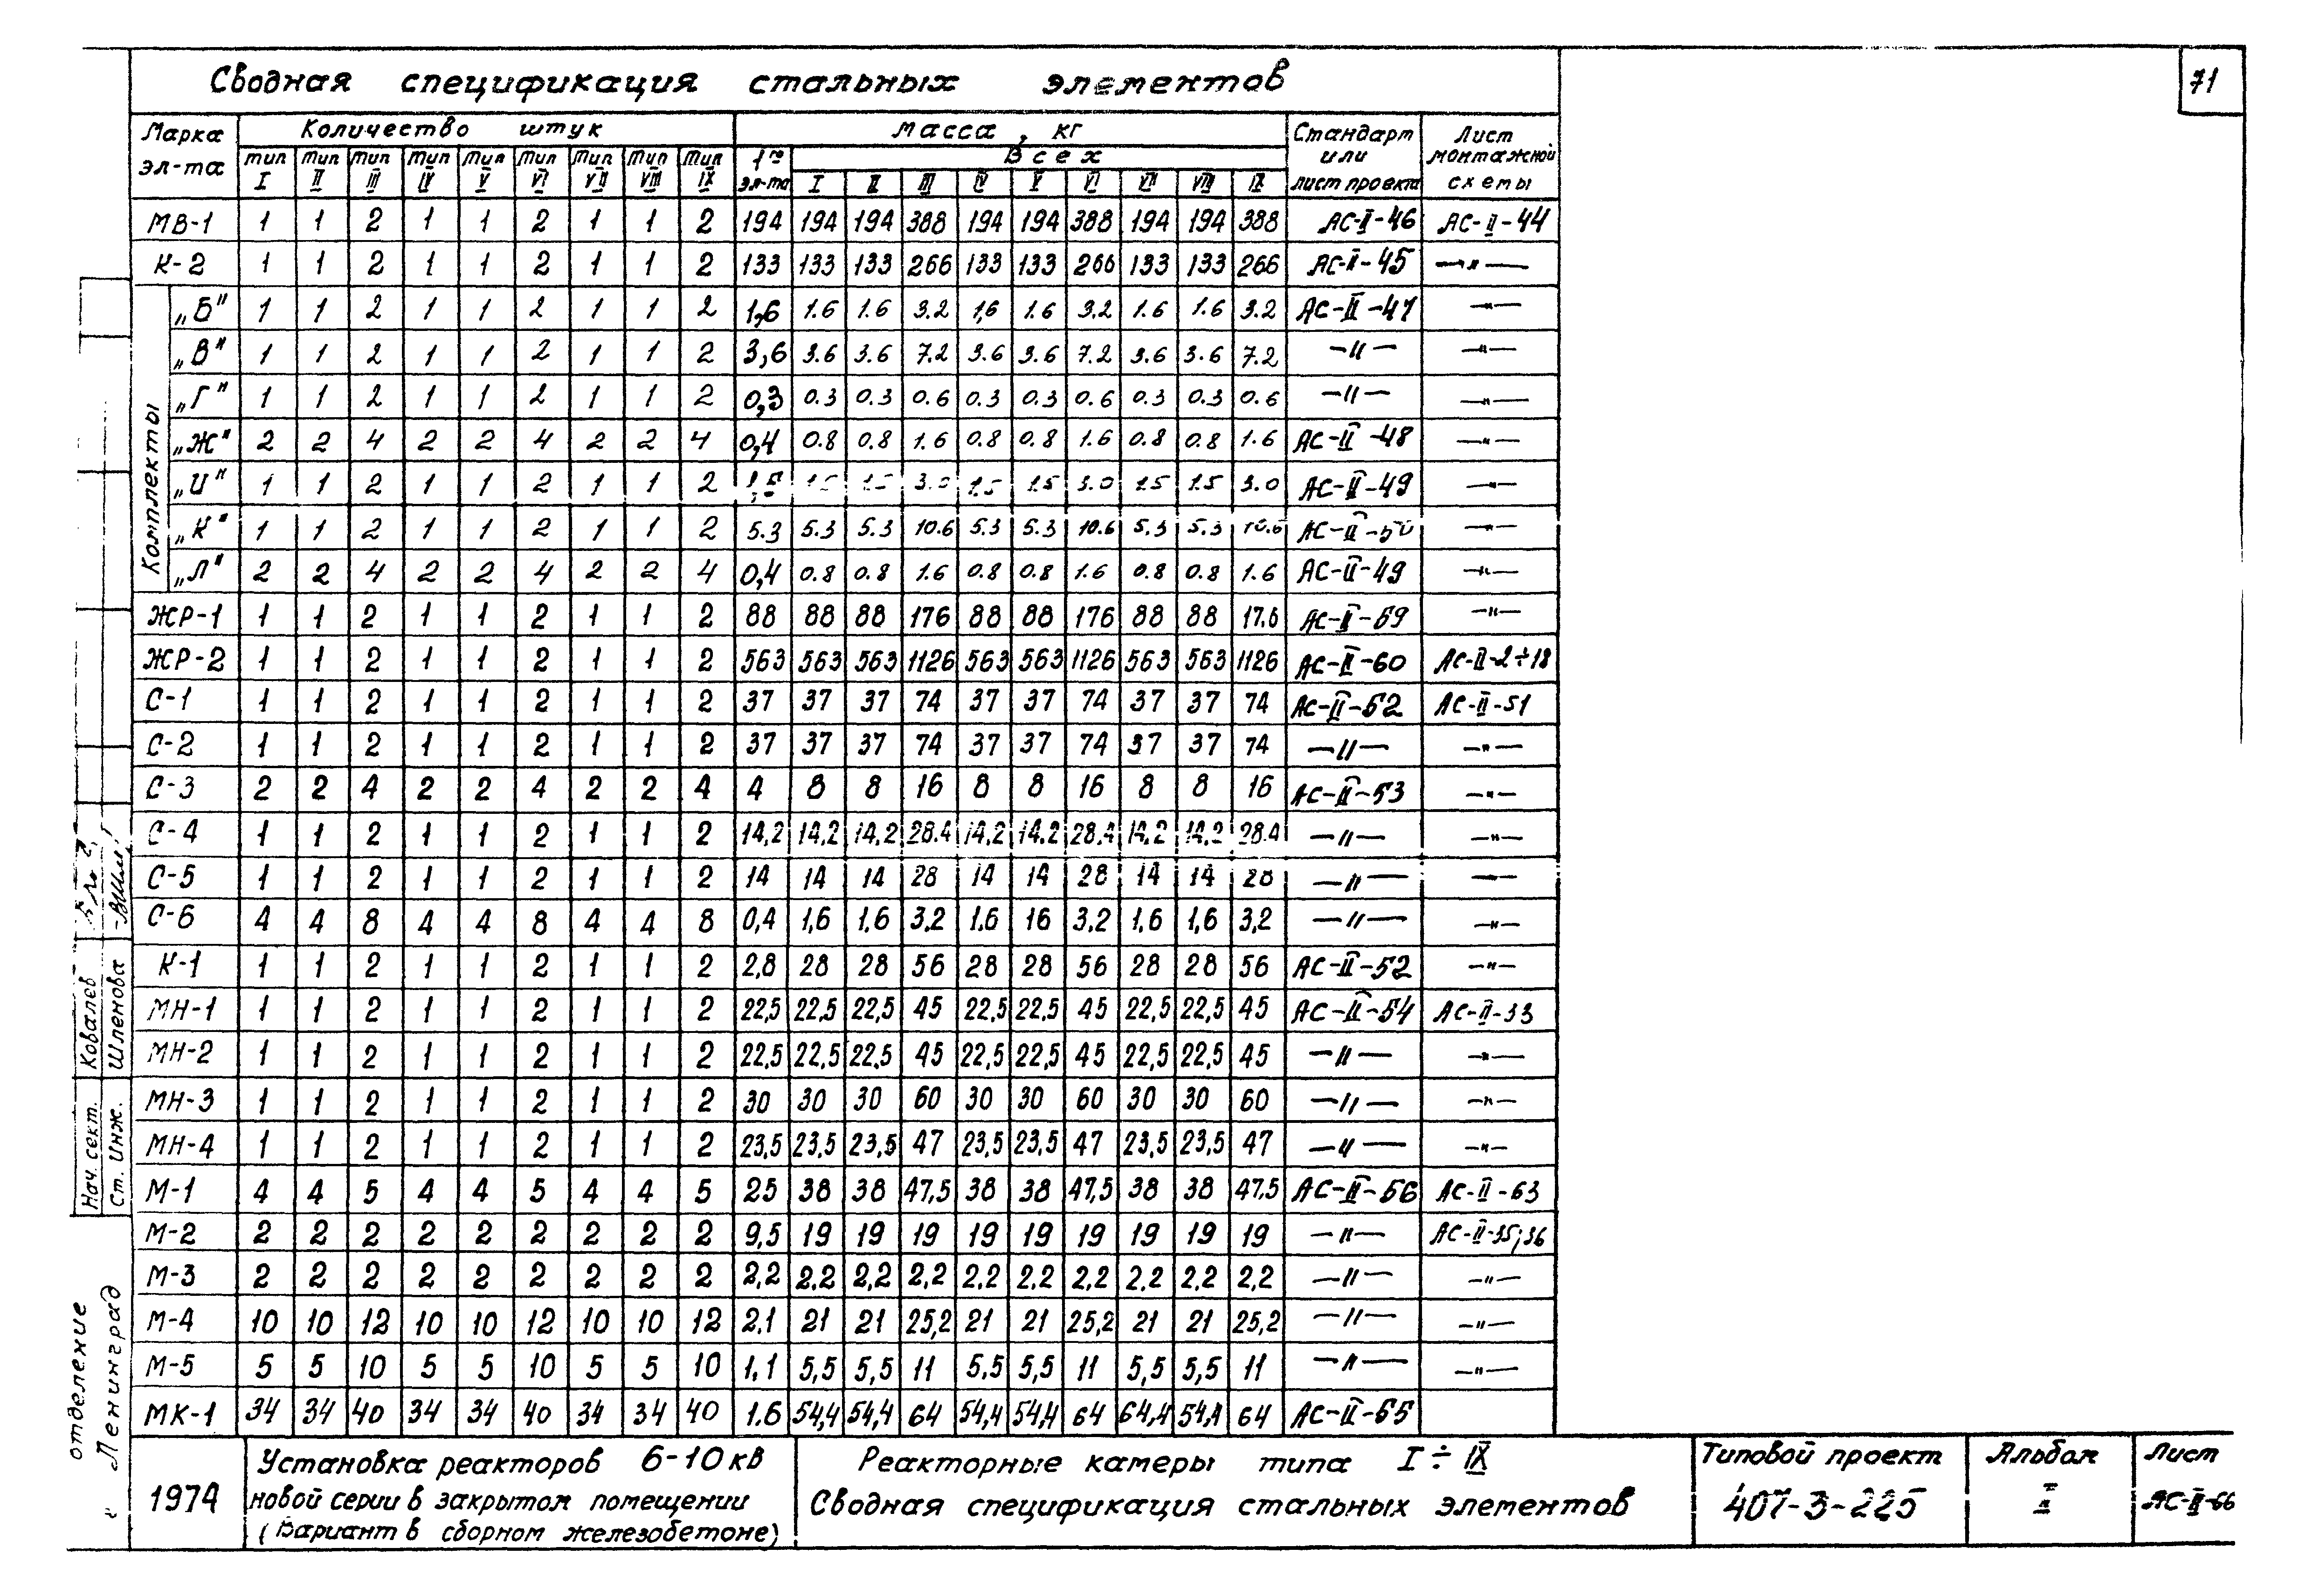 71
Сводная спецификация стальных элементов
Марка эл-та | Количество штук | Масса, кг | Стандарт или лист проекта | Лист монтажной схемы
тип I | тип II | тип III | тип IV | тип V | тип VI | тип VII | тип VIII | тип IX | 1го эл-та | Всех
I | II | III | IV | V | VI | VII | VIII | IX
МВ-1 1 1 2 1 1 2 1 1 2 194 194 194 388 194 194 388 194 194 388 АС-II-46 АС-II-44
К-2 1 1 2 1 1 2 1 1 2 133 133 133 266 133 133 266 133 133 266 АС-II-45 —"—
Комплекты
„Б" 1 1 2 1 1 2 1 1 2 1,6 1.6 1.6 3.2 1,6 1.6 3,2 1.6 1.6 3.2 АС-II-47 —"—
„В" 1 1 2 1 1 2 1 1 2 3,6 3.6 3.6 7.2 3.6 3.6 7.2 3.6 3.6 7.2 —"— —"—
„Г" 1 1 2 1 1 2 1 1 2 0,3 0.3 0.3 0.6 0.3 0.3 0.6 0.3 0.3 0.6 —"— —"—
„Ж" 2 2 4 2 2 4 2 2 4 0,4 0.8 0.8 1.6 0.8 0.8 1.6 0.8 0.8 1.6 АС-II-48 —"—
„И" 1 1 2 1 1 2 1 1 2 1,5 1.5 1.5 3.0 1.5 1.5 3.0 1.5 1.5 3.0 АС-II-49 —"—
„К" 1 1 2 1 1 2 1 1 2 5.3 5.3 5.3 10.6 5.3 5.3 10.6 5.3 5.3 10.6 АС-II-50 —"—
„Л" 2 2 4 2 2 4 2 2 4 0,4 0.8 0.8 1.6 0.8 0.8 1.6 0.8 0.8 1.6 АС-II-49 —"—
ЖР-1 1 1 2 1 1 2 1 1 2 88 88 88 176 88 88 176 88 88 17.6 АС-II-59 —"—
ЖР-2 1 1 2 1 1 2 1 1 2 563 563 563 1126 563 563 1126 563 563 1126 АС-II-60 АС-II-2÷18
С-1 1 1 2 1 1 2 1 1 2 37 37 37 74 37 37 74 37 37 74 АС-II-52 АС-II-51
С-2 1 1 2 1 1 2 1 1 2 37 37 37 74 37 37 74 37 37 74 —"— —"—
С-3 2 2 4 2 2 4 2 2 4 4 8 8 16 8 8 16 8 8 16 АС-II-53 —"—
С-4 1 1 2 1 1 2 1 1 2 14,2 14,2 14,2 28.4 14,2 14.2 28.4 14.2 14.2 28.4 —"— —"—
С-5 1 1 2 1 1 2 1 1 2 14 14 14 28 14 14 28 14 14 28 —"— —"—
С-6 4 4 8 4 4 8 4 4 8 0,4 1,6 1.6 3.2 1.6 16 3,2 1,6 1,6 3,2 —"— —"—
К-1 1 1 2 1 1 2 1 1 2 2,8 28 28 56 28 28 56 28 28 56 АС-II-52 —"—
МН-1 1 1 2 1 1 2 1 1 2 22,5 22,5 22,5 45 22,5 22,5 45 22,5 22,5 45 АС-II-54 АС-II-33
МН-2 1 1 2 1 1 2 1 1 2 22,5 22,5 22.5 45 22,5 22,5 45 22,5 22,5 45 —"— —"—
МН-3 1 1 2 1 1 2 1 1 2 30 30 30 60 30 30 60 30 30 60 —"— —"—
МН-4 1 1 2 1 1 2 1 1 2 23,5 23,5 23,5 47 23,5 23,5 47 23,5 23,5 47 —"— —"—
М-1 4 4 5 4 4 5 4 4 5 25 38 38 47,5 38 38 47,5 38 38 47.5 АС-II-56 АС-II-63
М-2 2 2 2 2 2 2 2 2 2 9,5 19 19 19 19 19 19 19 19 19 —"— АС-II-35;36
М-3 2 2 2 2 2 2 2 2 2 2,2 2.2 2,2 2,2 2.2 2.2 2,2 2.2 2.2 2,2 —"— —"—
М-4 10 10 12 10 10 12 10 10 12 2.1 21 21 25,2 21 21 25,2 21 21 25,2 —"— —"—
М-5 5 5 10 5 5 10 5 5 10 1,1 5,5 5,5 11 5.5 5,5 11 5,5 5,5 11 —"— —"—
МК-1 34 34 40 34 34 40 34 34 40 1.6 54,4 54,4 64 54,4 54,4 64 64,4 54,4 64 АС-II-55
Нач. сект. Ковалев
Ст. инж. Шленова
отделение
Ленинград
1974
Установка реакторов 6-10 кВ
новой серии в закрытом помещении
(Вариант в сборном железобетоне)
Реакторные камеры типа I÷IX
Сводная спецификация стальных элементов
Типовой проект
407-3-225
Альбом
II
Лист
АС-II-66